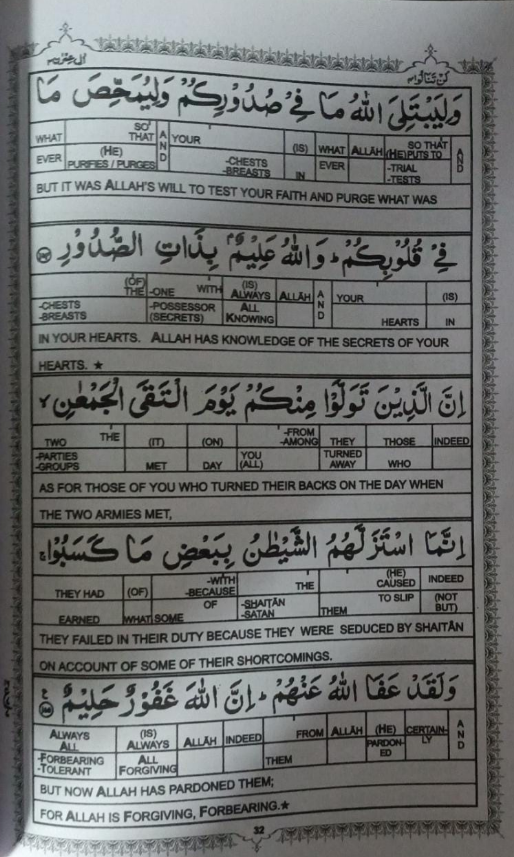 لَنْ تَنَالُوا ۴ اٰل عِمْرٰن ۳
وَلِيَبْتَلِيَ اللّٰهُ مَا فِيْ صُدُوْرِكُمْ وَلِيُمَحِّصَ مَا
WHAT SO THAT AND YOUR (IS) WHAT ALLĀH SO THAT AND
EVER (HE) PURFIES / PURGES -CHESTS -BREASTS IN EVER (HE) PUTS TO -TRIAL -TESTS
BUT IT WAS ALLAH'S WILL TO TEST YOUR FAITH AND PURGE WHAT WAS
فِيْ قُلُوْبِكُمْ ؕ وَاللّٰهُ عَلِيْمٌۢ بِذَاتِ الصُّدُوْرِ
(OF) THE -ONE WITH (IS) ALWAYS ALLĀH AND YOUR (IS)
-CHESTS -BREASTS -POSSESSOR (SECRETS) ALL KNOWING HEARTS IN
IN YOUR HEARTS. ALLAH HAS KNOWLEDGE OF THE SECRETS OF YOUR
HEARTS. ★
اِنَّ الَّذِيْنَ تَوَلَّوْا مِنْكُمْ يَوْمَ الْتَقَى الْجَمْعٰنِ ۙ
TWO THE (IT) (ON) -FROM -AMONG THEY THOSE INDEED
-PARTIES -GROUPS MET DAY YOU (ALL) TURNED AWAY WHO
AS FOR THOSE OF YOU WHO TURNED THEIR BACKS ON THE DAY WHEN
THE TWO ARMIES MET,
اِنَّمَا اسْتَزَلَّهُمُ الشَّيْطٰنُ بِبَعْضِ مَا كَسَبُوْا ۚ
THEY HAD (OF) -WITH -BECAUSE THE (HE) CAUSED INDEED
EARNED WHAT SOME OF -SHAITĀN -SATAN THEM TO SLIP (NOT BUT)
THEY FAILED IN THEIR DUTY BECAUSE THEY WERE SEDUCED BY SHAITĀN
ON ACCOUNT OF SOME OF THEIR SHORTCOMINGS.
وَلَقَدْ عَفَا اللّٰهُ عَنْهُمْ ؕ اِنَّ اللّٰهَ غَفُوْرٌ حَلِيْمٌ
ALWAYS ALL (IS) ALWAYS ALLĀH INDEED FROM ALLĀH (HE) CERTAIN- AND
-FORBEARING -TOLERANT ALL FORGIVING THEM PARDON-ED LY
BUT NOW ALLAH HAS PARDONED THEM;
FOR ALLAH IS FORGIVING, FORBEARING.★
32